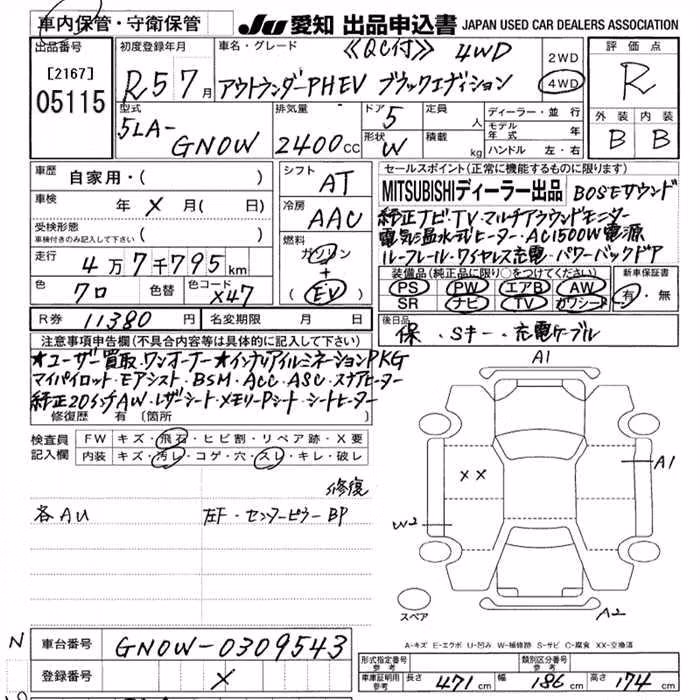 車内保管・守衛保管 JU 愛知 出品申込書 JAPAN USED CAR DEALERS ASSOCIATION
出品番号 初度登録年月 車名・グレード 《QC付》 4WD 2WD 評価点
[2167] R5 7月 アウトランダーPHEV ブラックエディション 4WD R
05115
型式 排気量 ドア 5 定員 人 ディーラー・並行 外装 内装
5LA- モデル年式 年
GN0W 2400cc 形状 W 積載 kg ハンドル 左・右 B B
車歴 自家用・( ) シフト AT セールスポイント(正常に機能するものに限ります)
MITSUBISHIディーラー出品 BOSEサウンド
車検 年 X 月( 日) 冷房 AAC 純正ナビ・TV・マルチアラウンドモニター
受検形態 電気温水式ヒーター・AC1500W電源
車検付きのみ記入して下さい ( ) 燃料 ガソリン ルーフレール・ワイヤレス充電・パワーバックドア
走行 4万7千795km + 装備品(純正品に限り○をつけてください) 新車保証書
色 クロ 色替 色コード X47 (EV) PS PW エアB AW 有・無
SR ナビ TV カワシート
R券 11380円 名変期限 月 日 後日品 保・Sキー・充電ケーブル
注意事項申告欄(不具合内容等は具体的に記入して下さい)
★ユーザー買取・ワンオーナー★インテリアイルミネーションPKG
マイパイロット・Eアシスト・BSM・ACC・ASC・ステアヒーター
純正20インチAW・レザーシート・メモリーPシート・シートヒーター
修復歴 有 〔箇所 〕
検査員記入欄 FW キズ・飛石・ヒビ割・リペア跡・X要
内装 キズ・汚レ・コゲ・穴・スレ・キレ・破レ
修復
各AU 左F・センターピラーBP
A1
XX
A1
W2
スペア
A2
A-キズ E-エクボ U-凹み W-補修跡 S-サビ C-腐食 XX-交換済
N 車台番号 GN0W-0309543
形式指定番号 参考 類別区分番号 参考
登録番号 X 車庫証明用 参考 長さ 471cm 幅 186cm 高さ 174cm